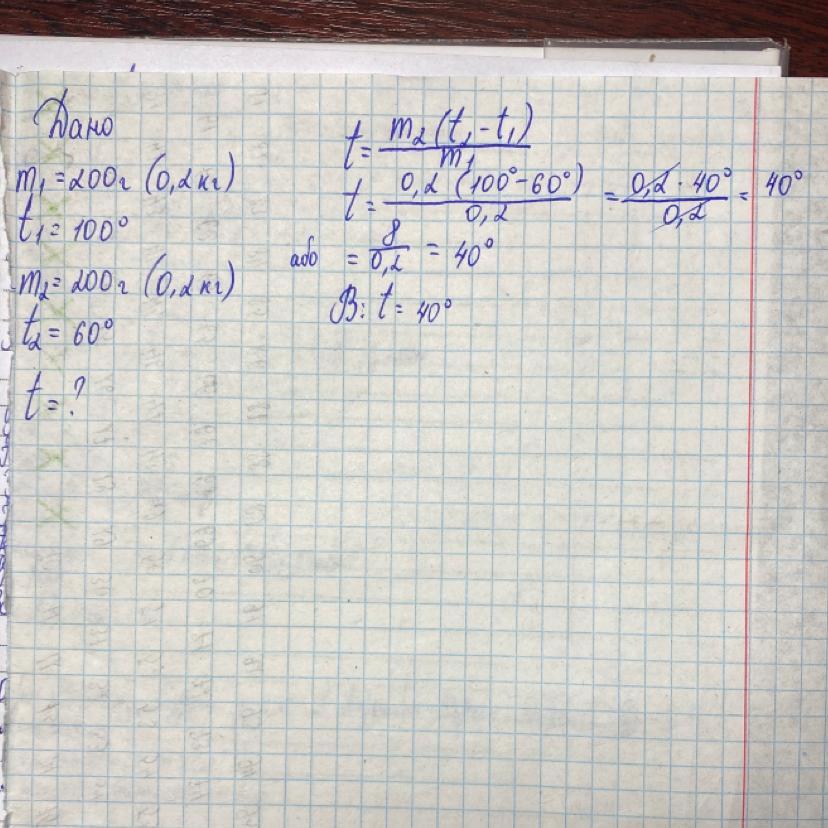 Дано
m₁ = 200г (0,2кг)
t₁ = 100°
m₂ = 200г (0,2кг)
t₂ = 60°
t = ?
t = m₂(t₂ - t₁) / m₁
t = 0,2 (100° - 60°) / 0,2 = 0,2 · 40° / 0,2 = 40°
або = 8 / 0,2 = 40°
В: t = 40°